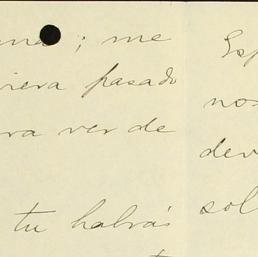 ; me
iera pasado
ra ver de
tu habrás
Esp
nos
dev
sol